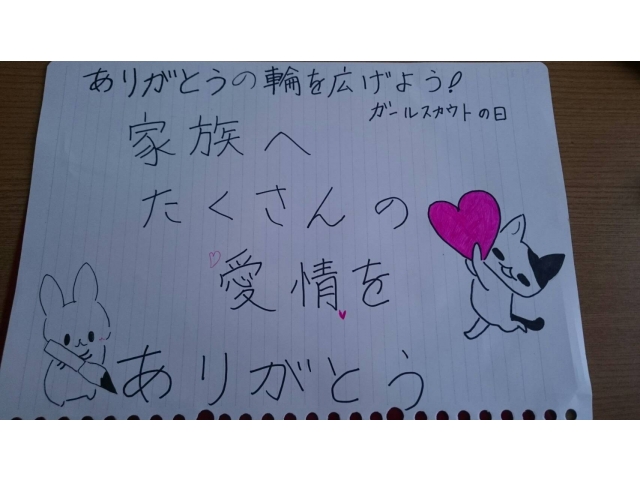 ありがとうの輪を広げよう!
ガールスカウトの日
家族へ
たくさんの
愛情を
ありがとう